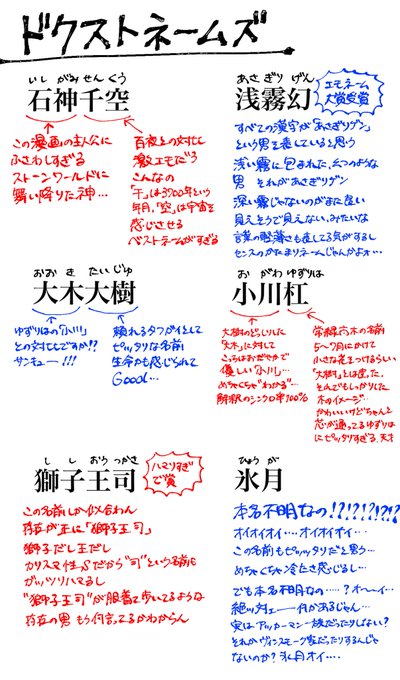 ドクストネームズ
いし がみ せん くう
石神千空
この漫画の主人公に
ふさわしすぎる
ストーンワールドに
舞い降りた神…
百夜との対比も
激エモだろ
こんなの
「千」は3900年という
年月、「空」は宇宙を
感じさせる
ベストネームがすぎる
あさ ぎり げん
浅霧幻
エモネーム
大賞受賞
すべての漢字が「あさぎりゲン」
という男を表していると思う
浅い霧に包まれた、幻のような
男 それがあさぎりゲン
深い霧じゃないのがまた良い
見えそうで見えない、みたいな
言葉の軽薄さも表してる気がするし
センスのかたまりネームじゃんかよォ…
おお き たい じゅ
大木大樹
ゆずりはの「小川」
との対比ですか!?
サンキュー!!!
頼れるタフガイとして
ピッタリな名前
生命力も感じられて
Good…
お がわ ゆずりは
小川杠
大樹のどっしりした
「大木」に対して
こっちはおだやかで
優しい「小川」…
めちゃくちゃ"わかる"…
解釈のシンクロ率100%
常緑高木の名前
5~7月にかけて
小さな花をつけるらしい
「大樹」とは違った、
それでもしっかりした
木のイメージ…
かわいいけどちゃんと
芯が通ってるゆずりは
にピッタリすぎる、天才
し し おう つかさ
獅子王司
ハマりすぎ
で賞
この名前しか似合わん
存在が正に「獅子王司」
獅子だし王だし
カリスマ性Sだから"司"という名前も
ガッツリハマるし
"獅子王司"が服着て歩いてるような
存在の男 もう何言ってるかわからん
ひょう が
氷月
本名不明なの!?!?!?!?!?
オイオイオイ…オイオイオイ…
この名前もピッッタリだと思う…
めちゃくちゃ冷たさ感じるし…
でも本名不明なの……?オ〜イ…
絶ッ対ェ――何かあるじゃん…
実はアッカーマン一族だったりしない?
それかヴィンスモーク家だったりするんじゃ
ないのか?氷月オイ….